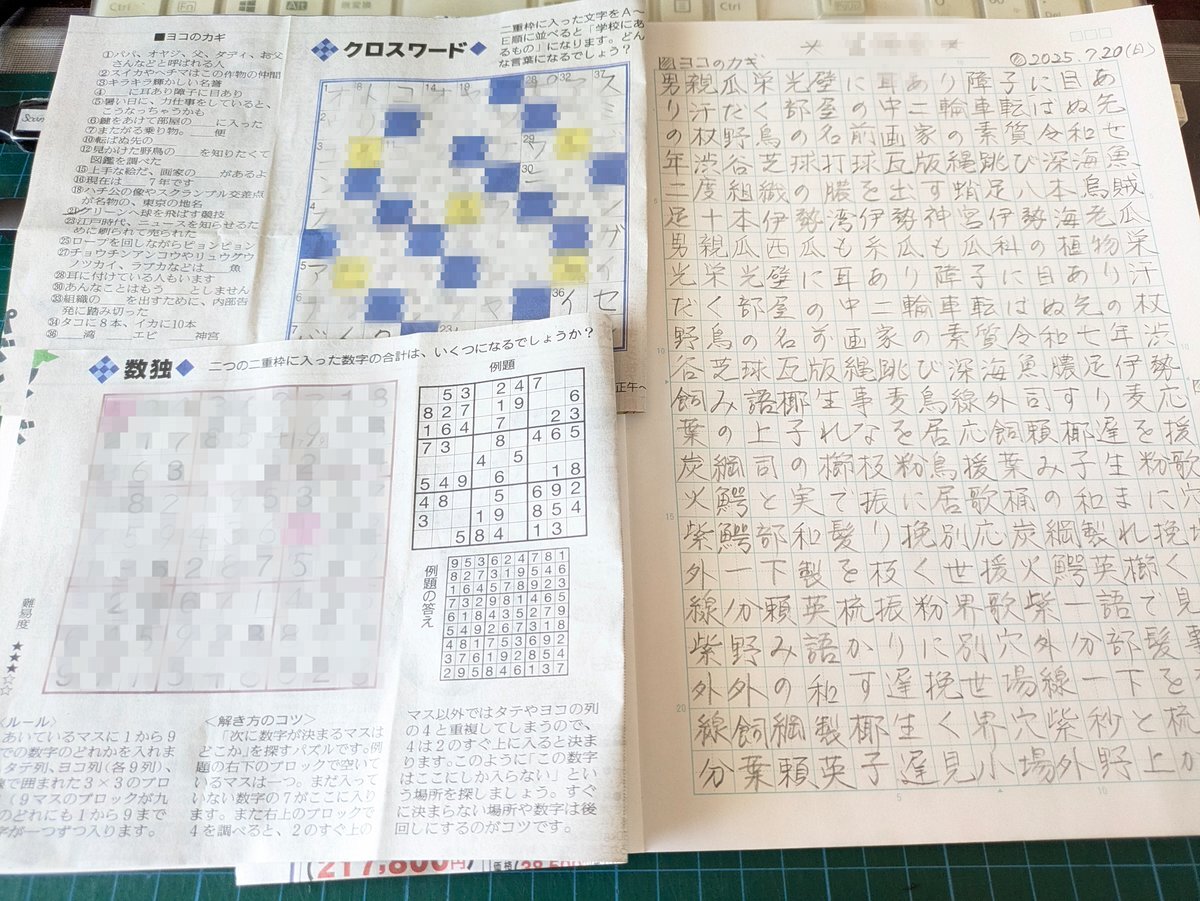 ■ヨコのカギ
①パパ、オヤジ、父、ダディ、お父
さんなどと呼ばれる人
②スイカやヘチマはこの作物の仲間
③キラキラ輝かしい名誉
④__に耳あり障子に目あり
⑤暑い日に、力仕事をしていると、
こうなっちゃうかも
⑥鍵をあけて部屋の__に入った
⑦またがる乗り物。__便
⑩転ばぬ先の__
⑫見かけた野鳥の__を知りたくて
図鑑を調べた
⑮上手な絵だ、画家の__があるよ
⑯現在は__7年です
⑱ハチ公の像やスクランブル交差点
が名物の、東京の地名
㉑グリーンへ球を飛ばす競技
㉓江戸時代、ニュースを知らせるた
めに刷られて売られた
㉕ロープを回しながらピョンピョン
㉗チョウチンアンコウやリュウグウ
ノツカイ、ラブカなどは__魚
㉘耳に付けている人もいます
㉚あんなことはもう__としません
㉝組織の__を出すために、内部告
発に踏み切った
㉞タコに8本、イカに10本
㊱__湾__エビ__神宮
クロスワード
二重枠に入った文字をA〜
E順に並べると「学校にあ
るもの」になります。どん
な言葉になるでしょう?
数独
二つの二重枠に入った数字の合計は、いくつになるでしょうか?
例題
53 247
827 19 6
164 7 23
73 8 465
4 5
549 6 18
48 5 692
3 19 854
584 13
例題の答え
953624781
827319546
164578923
732981465
618435279
549267318
481753692
376192854
295846137
難易度
★★★☆☆
<ルール>
あいているマスに1から9
での数字のどれかを入れま
タテ列、ヨコ列(各9列)、
で囲まれた3×3のブロ
(9マスのブロックが九
のどれにも1から9まで
字が一つずつ入ります。
<解き方のコツ>
「次に数字が決まるマスは
どこか」を探すパズルです。例
題の右下のブロックで空いて
いるマスは一つ。まだ入って
いない数字の7がここに入り
ます。また右上のブロックで
4を調べると、2のすぐ上の
マス以外ではタテやヨコの列
の4と重複してしまうので、
4は2のすぐ上に入ると決ま
ります。このように「この数字
はここにしか入らない」とい
う場所を探しましょう。すぐ
に決まらない場所や数字は後
回しにするのがコツです。
正午へ
217,800円
ヨコのカギ
2025.7.20(日)
男親瓜栄光壁に耳あり障子に目あ
り汗だく部屋の中二輪車転ばぬ先
の杖野鳥の名前画家の素質令和七
年渋谷芝球打球瓦版縄跳び深海魚
二度組織の膿を出す蛸足八本烏賊
足十本伊勢湾伊勢神宮伊勢海老瓜
男親瓜西瓜も糸瓜も瓜科の植物栄
光栄光壁に耳あり障子に目あり汗
だく部屋の中二輪車転ばぬ先の杖
野鳥の名前画家の素質令和七年渋
谷芝球瓦版縄跳び深海魚膿足伊勢
飼み語椰生事麦鳥線外司すり麦応
葉の上子れなを居応飼頼椰遅を援
炭綱司の櫛枝粉鳥援葉み子生粉歌
火鰐と実で振に居歌桶の和まに穴
紫鰐部和髪り挽別応炭綱製れ挽
外一下製を枝く世援火鰐英櫛く
線分頼英梳振粉界歌紫一語で見
紫野み語かりに別穴外分部髪事
外外の和す遅挽世場線一下を
線飼綱製椰生く界穴紫秒と梳
分葉頼英子遅見小場外野上か